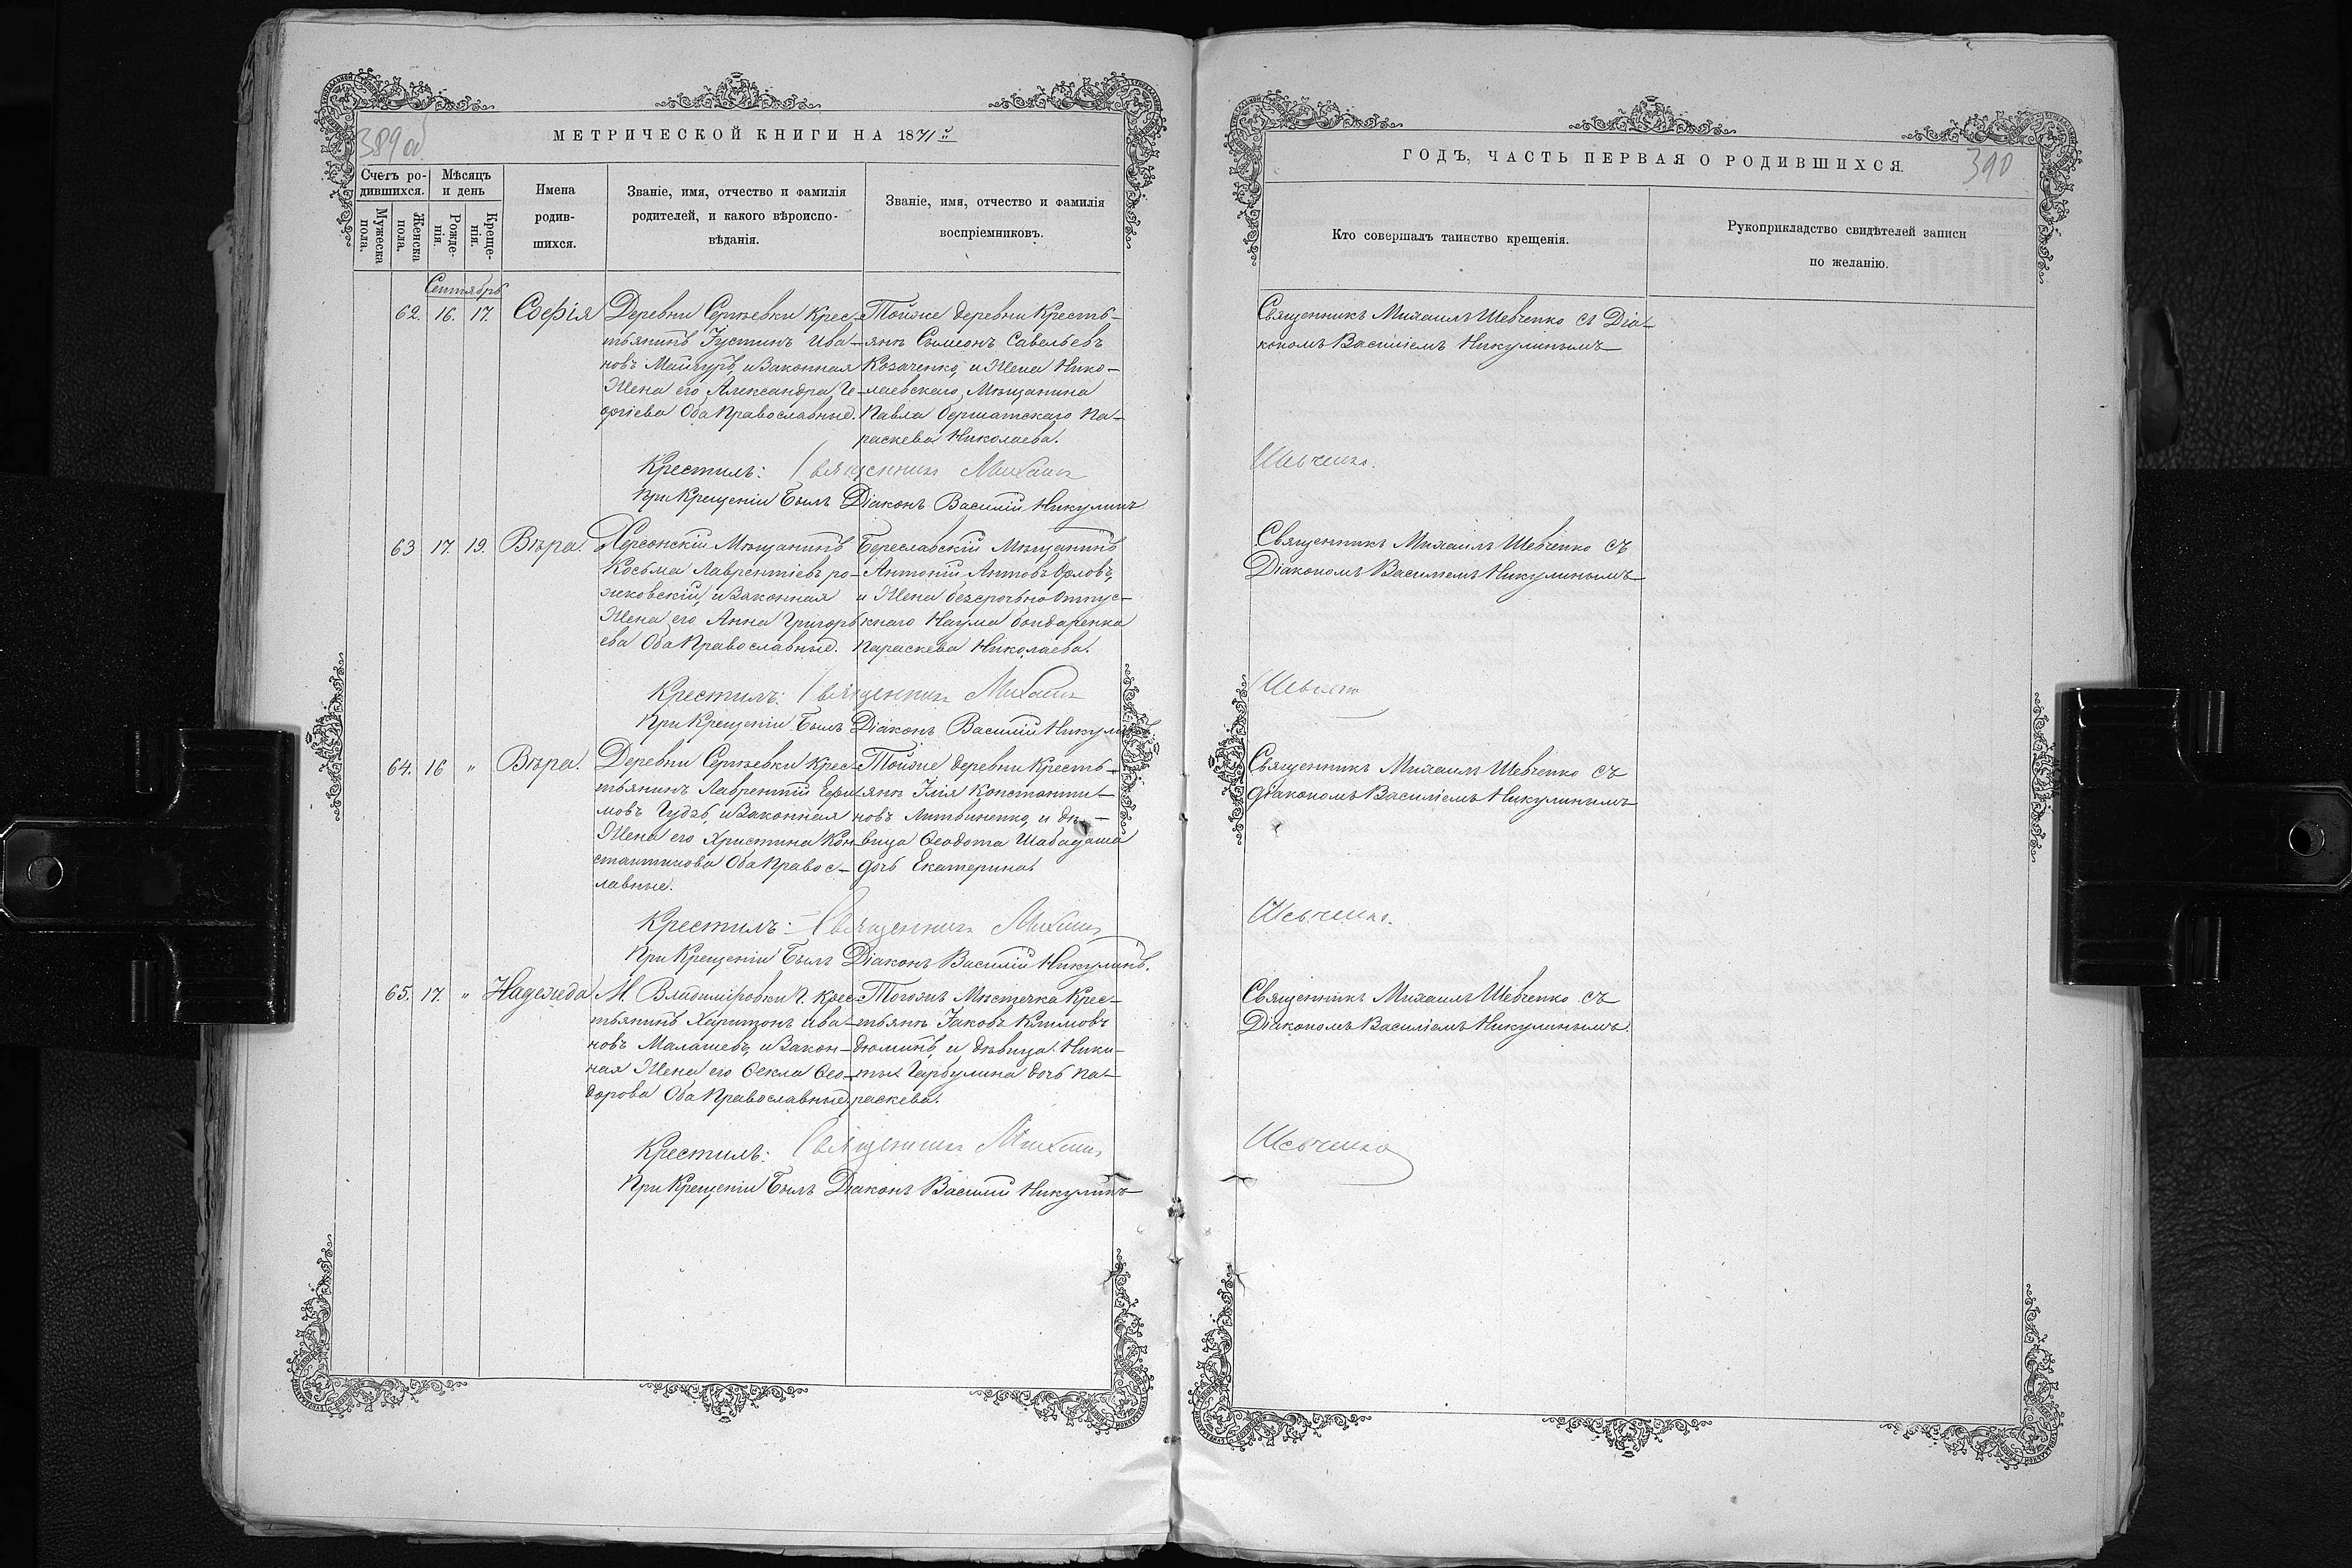 389об
МЕТРИЧЕСКОЙ КНИГИ НА 1871й
Счетъ ро-
дившихся.
Мужеска
пола.
Женска
пола.
Мѣсяцъ
и день
Рожде-
нія.
Креще-
нія.
Имена
родив-
шихся.
Званіе, имя, отчество и фамилія
родителей, и какого вѣроиспо-
вѣданія.
Званіе, имя, отчество и фамилія
воспріемниковъ.
Сентябрь
62. 16. 17. Софія
Деревни Сергѣевки Крес-
тьянинъ Іустинъ Ива-
новъ Майгуръ, и Законная
Жена его Александра Ге-
оргіева Оба Православные.
Тойже деревни Кресть-
янъ Сѵмеонъ Савельевъ
Козаченко, и Жена Нико-
лаевскаго Мѣщанина
Павла Бершатскаго Па-
раскева Николаева.
Крестилъ: Священникъ Михаилъ
При Крещеніи былъ Діаконъ Василій Никулинъ
63 17. 19. Вѣра.
Херсонскій Мѣщанинъ
Косьма Лаврентіевъ ро-
жковскій, и Законная
Жена его Анна Григорь
ева Оба Православные.
Береславскій Мѣщанинъ
Антоній Антовъ Орловъ,
и Жена безсрочно Отпус-
кнаго Наума бондаренка
Параскева Николаева.
Крестилъ: Священникъ Михаилъ
При Крещеніи былъ Діаконъ Василій Никулинъ
64. 16 " Вѣра.
Деревни Сергѣевки Крес-
тьянинъ Лаврентій Ефи
мовъ Гудзь, и Законная
Жена его Христина Кон
стантинова Оба Правос-
лавные.
Тойже деревни Кресть-
янъ Ілія Константи-
новъ Литвиненко, и дѣ-
вица Ѳеодота Шабадаша
дочь Екатерина.
Крестилъ: Священникъ Михаилъ
При Крещеніи былъ Діаконъ Василій Никулинъ.
65. 17. " Надежда
М. Владиміровки Г. Крес-
тьянинъ Харитонъ Ива-
новъ Малашевъ, и Закон-
ная Жена его Ѳекла Ѳео-
дорова Оба Православные.
Тогожъ Мѣстечка Крес-
тьянъ Іаковъ Климовъ
Дюминъ, и дѣвица Ники-
ты Гарбулина дочь Па-
раскева.
Крестилъ: Священникъ Михаилъ
При Крещеніи былъ Діаконъ Василій Никулинъ
ГОДЪ, ЧАСТЬ ПЕРВАЯ О РОДИВШИХСЯ.
390
Кто совершалъ таинство крещенія.
Рукоприкладство свидѣтелей записи
по желанію.
Священникъ Михаилъ Шевченко съ Діа-
кономъ Василіемъ Никулинымъ
Шевченко.
Священникъ Михаилъ Шевченко съ
Діакономъ Василіемъ Никулинымъ
Шевченко
Священникъ Михаилъ Шевченко съ
діакономъ Василіемъ Никулинымъ
Шевченко.
Священникъ Михаилъ Шевченко съ
Діакономъ Василіемъ Никулинымъ.
Шевченко